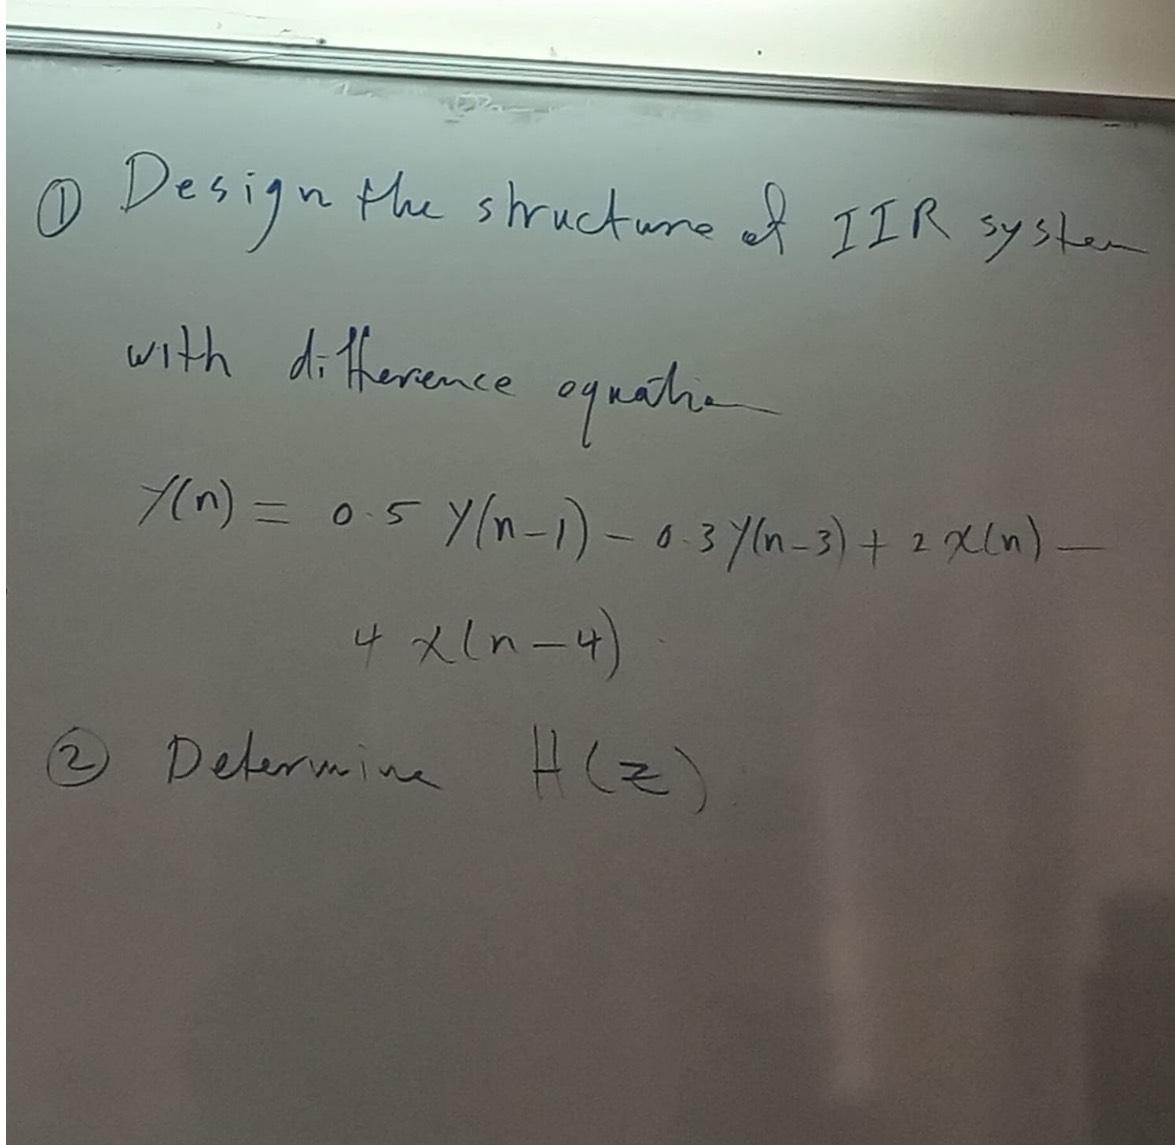 ① Design the structure of IIR system
with difference equation
y(n) = 0.5 y(n-1) - 0.3 y(n-3) + 2 x(n) -
4 x(n-4)
② Determine H(z)